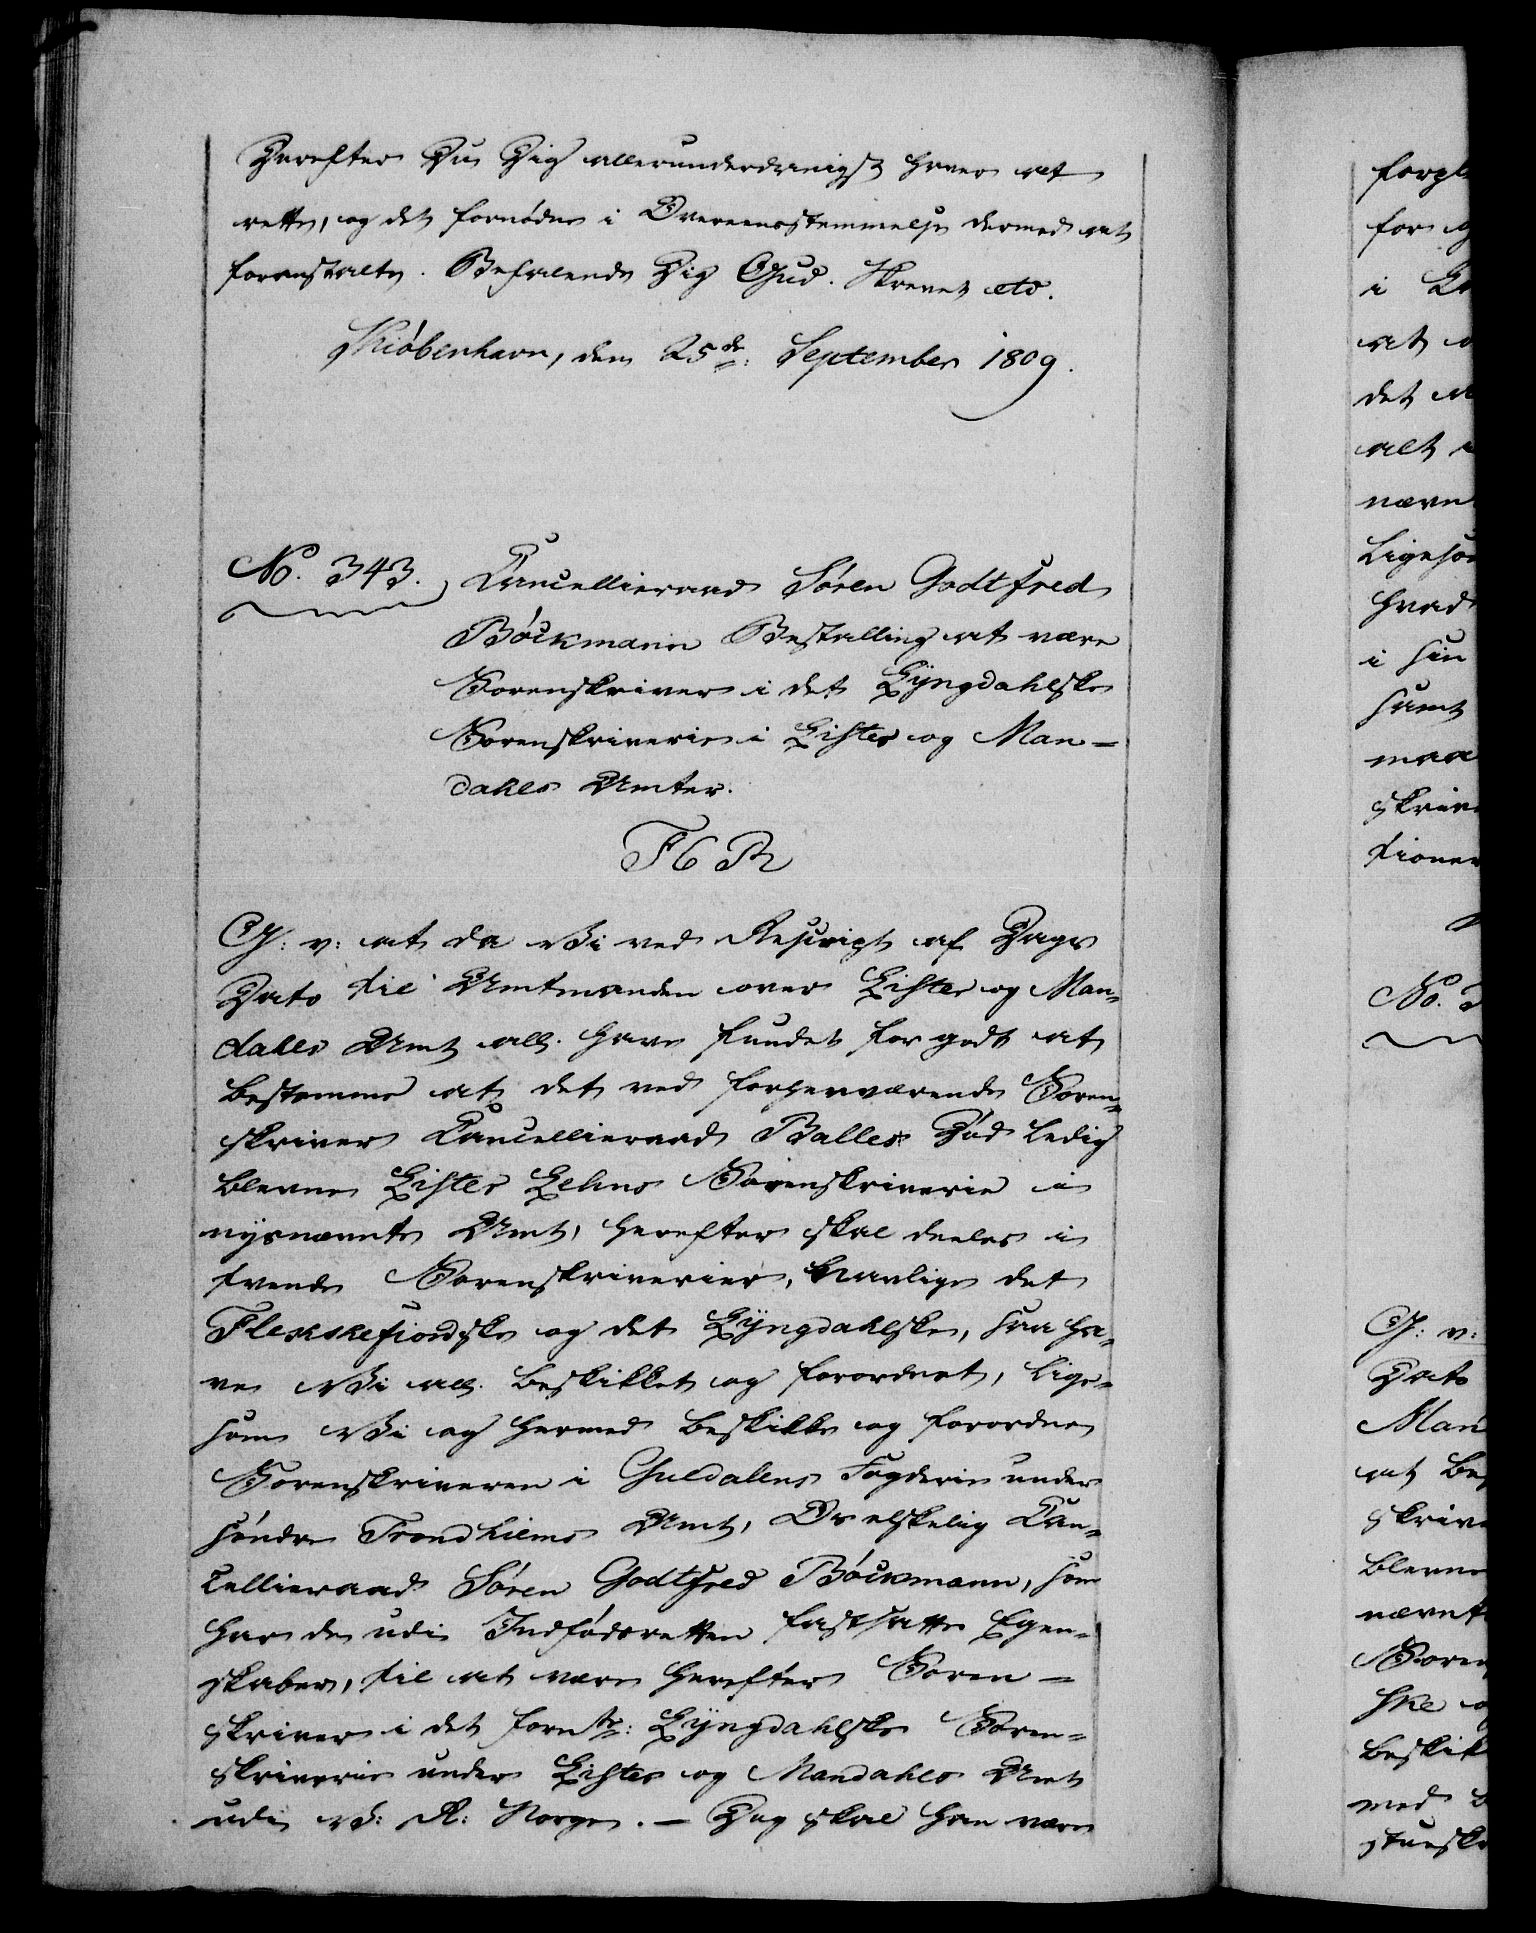 Derefter Du Dig allerunderdanigst haver at
rette, og det fornødne i Overeensstemmelse dermed at
foranstalte. Befalende Dig Gud. Skrevet etc.
Kiøbenhavn, den 25de: September 1809.
No. 343. Cancellieraad Søren Godtfred
Bøckmann Bestalling at være
Sorenskriver i det Lyngdahlske
Sorenskriverie i Lister og Man-
dahls Amter.
F6R
G: v: at da Vi ved Rescript af Dags
Dato til Amtmanden over Lister og Man-
dahls Amt all. have fundet for godt at
bestemme at det ved forhenværende Soren-
skriver Cancellieraad Balles Død ledig
blevne Lister Lehns Sorenskriverie i
nysnævnte Amt, herefter skal deeles i
tvende Sorenskriverier, navnlig det
Flekkefiordske og det Lyngdahlske, saa ha-
ve Vi all. beskikket og forordnet, lige-
som Vi og hermed beskikke og forordne
Sorenskriveren i Guldalens Fogderie under
søndre Trondhiems Amt, Os elskelig Can-
cellieraad Søren Godtfred Bøckmann, som
har de udi Indfødsretten fastsatte Egen-
skaber, til at være herefter Soren-
skriver i det fornte: Lyngdahlske Soren-
skriverie under Lister og Mandahls Amt
udi V: R: Norge. - Dog skal han være
forpl
for
i
at
det
alt
nævn
Ligesom
hvad
i sin
samt
maa
skriv
tioner
No. 3
G: v:
Dato
Man
at be
skriv
blevne
nævnte
Soren
ske
beskik
med